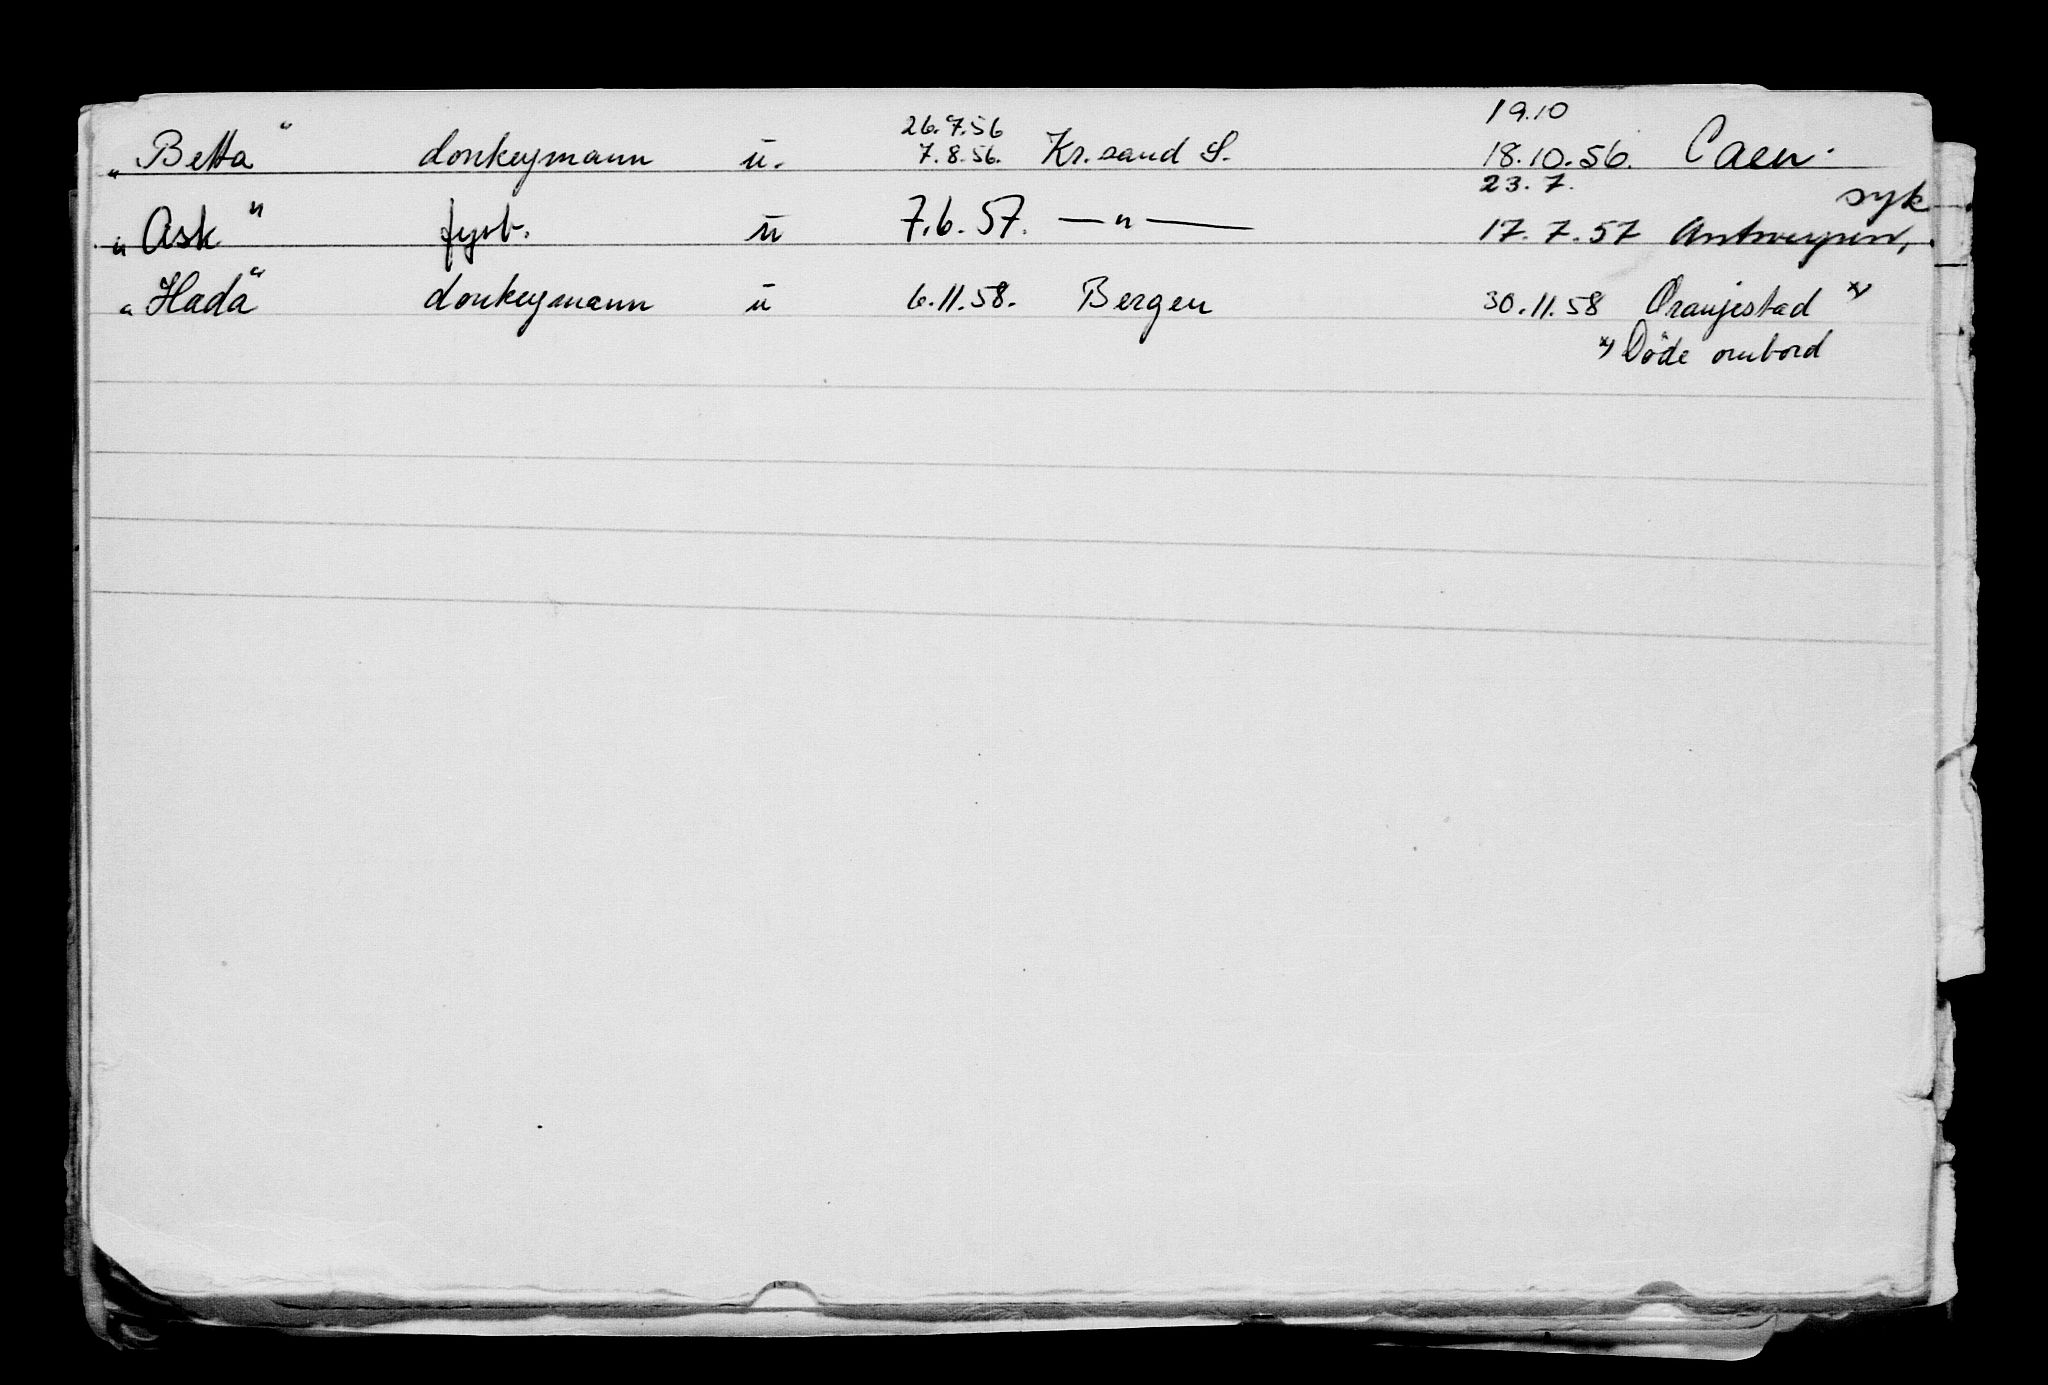 26.7.56 19.10
„Betta" donkeymann u. 7.8.56. Kr.sand S. 18.10.56. Caen.
23.7. syk
„Ask" fyrb. u 7.6.57. —"— 17.7.57 Antwerpen,
„Hada" donkeymann u 6.11.58. Bergen 30.11.58 Oranjestad x)
x) Döde ombord